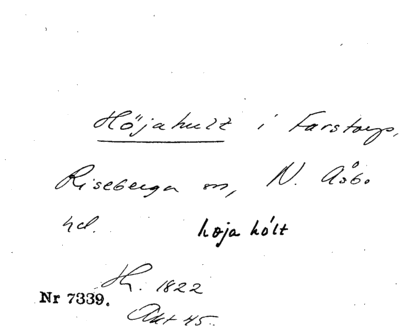 Höjahult i Farstorp,
Riseberga sn, N. Åsbo
hd. hoja hólt
Sk. 1822
Nr 7339.
Akt 45.